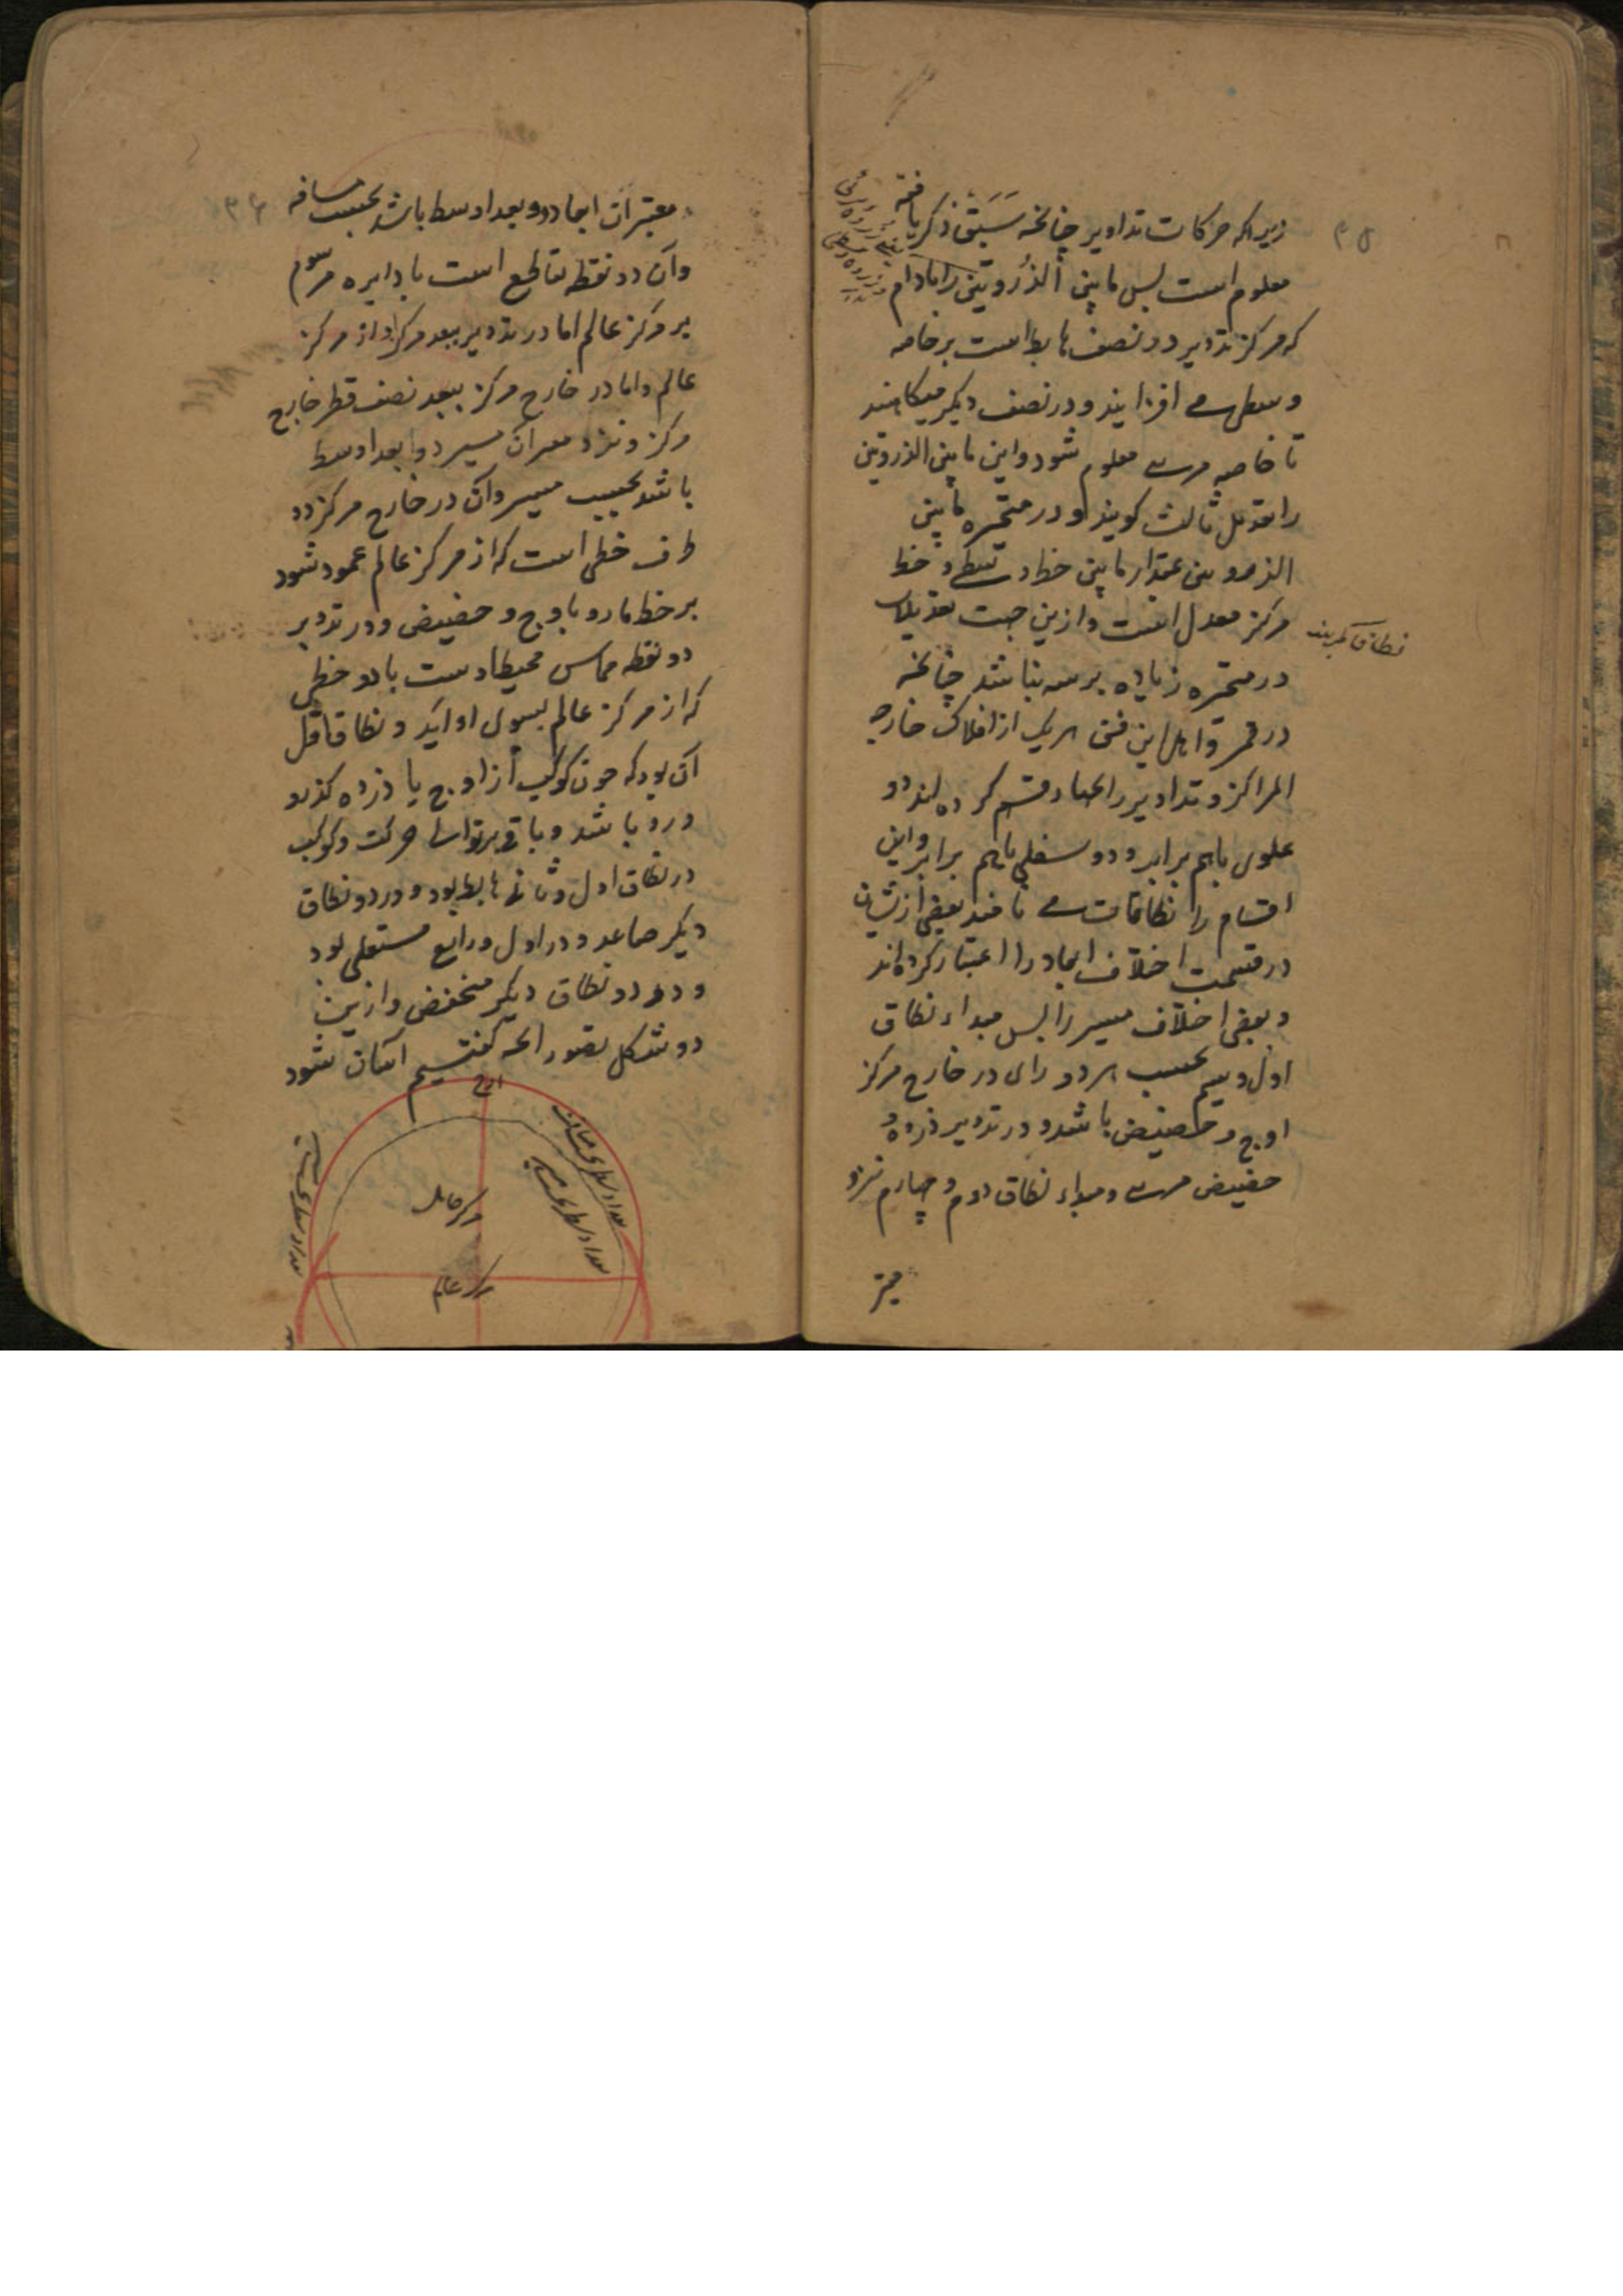 زیراکه حرکات تداویر چنانخه سَبَقَ ذکر یافته
معلوم است پس مابین الذروتین را مادام
که مرکز تدویر در نصف هابط است بر خاصه
وسطی مے افزایند و در نصف دیکر میکاهند
تا خاصه مرے معلوم شود و این مابین الذروتین
را تعدیل ثالث کویند و در متحیره مابین
الذروتین بمقدار مابین خط وسطے و خط
مرکز معدل است و ازین جهت تعدیلات
در متحیره زیاده بر سه نباشد چنانخه
در قمر و اهل این فن هریک از افلاک خارجه
المراکز و تداویر را بچهار قسم کرده اند دو
علوی باهم برابر و دو سفلی باهم برابر و این
اقسام را نطاقات مے نامند بعضی ازیشان
در قسمت اختلاف ابعاد را اعتبار کرده اند
و بعضی اختلاف مسیر را پس مبداء نطاق
اول و سیم بحسب هر دو رای در خارج مرکز
اوج و حضیض باشد و در تدویر ذروه و
حضیض مرے و مبداء نطاق دوم و چهارم نزد
معتبر
نطاق کمربند
۳۵
معتبران ابعاد دو بعد اوسط باشد بحسب مسافه
وآن دو نقطه تقاطع است با دایره مرسوم
بر مرکز عالم اما در تدویر ببعد مرکز او از مرکز
عالم و اما در خارج مرکز ببعد نصف قطر خارج
مرکز و نزد معتبران مسیر دو بعد اوسط
باشد بحسب مسیر وآن در خارج مرکز دو
طرف خطی است که از مرکز عالم عمود شود
بر خط مار و باوج و حضیض و در تدویر
دو نقطه مماس محیط اوست با دو خطی
که از مرکز عالم بسوی او آید و نطاق اول
آن بود که چون کوکب از اوج یا ذروه کذرد
درو باشد و باقی بر توالی حرکت و کوکب
در نطاق اول و ثانے هابط بود و در دو نطاق
دیکر صاعد و در اول و رابع مستعلی بود
و در دو نطاق دیکر منخفض و ازین
دو شکل تصور آنچه کفتیم آسان شود
اوج
مرکز حامل
مرکز عالم
بعد اوسط بحسب مسافت
بعد اوسط بحسب مسیر
۳۶